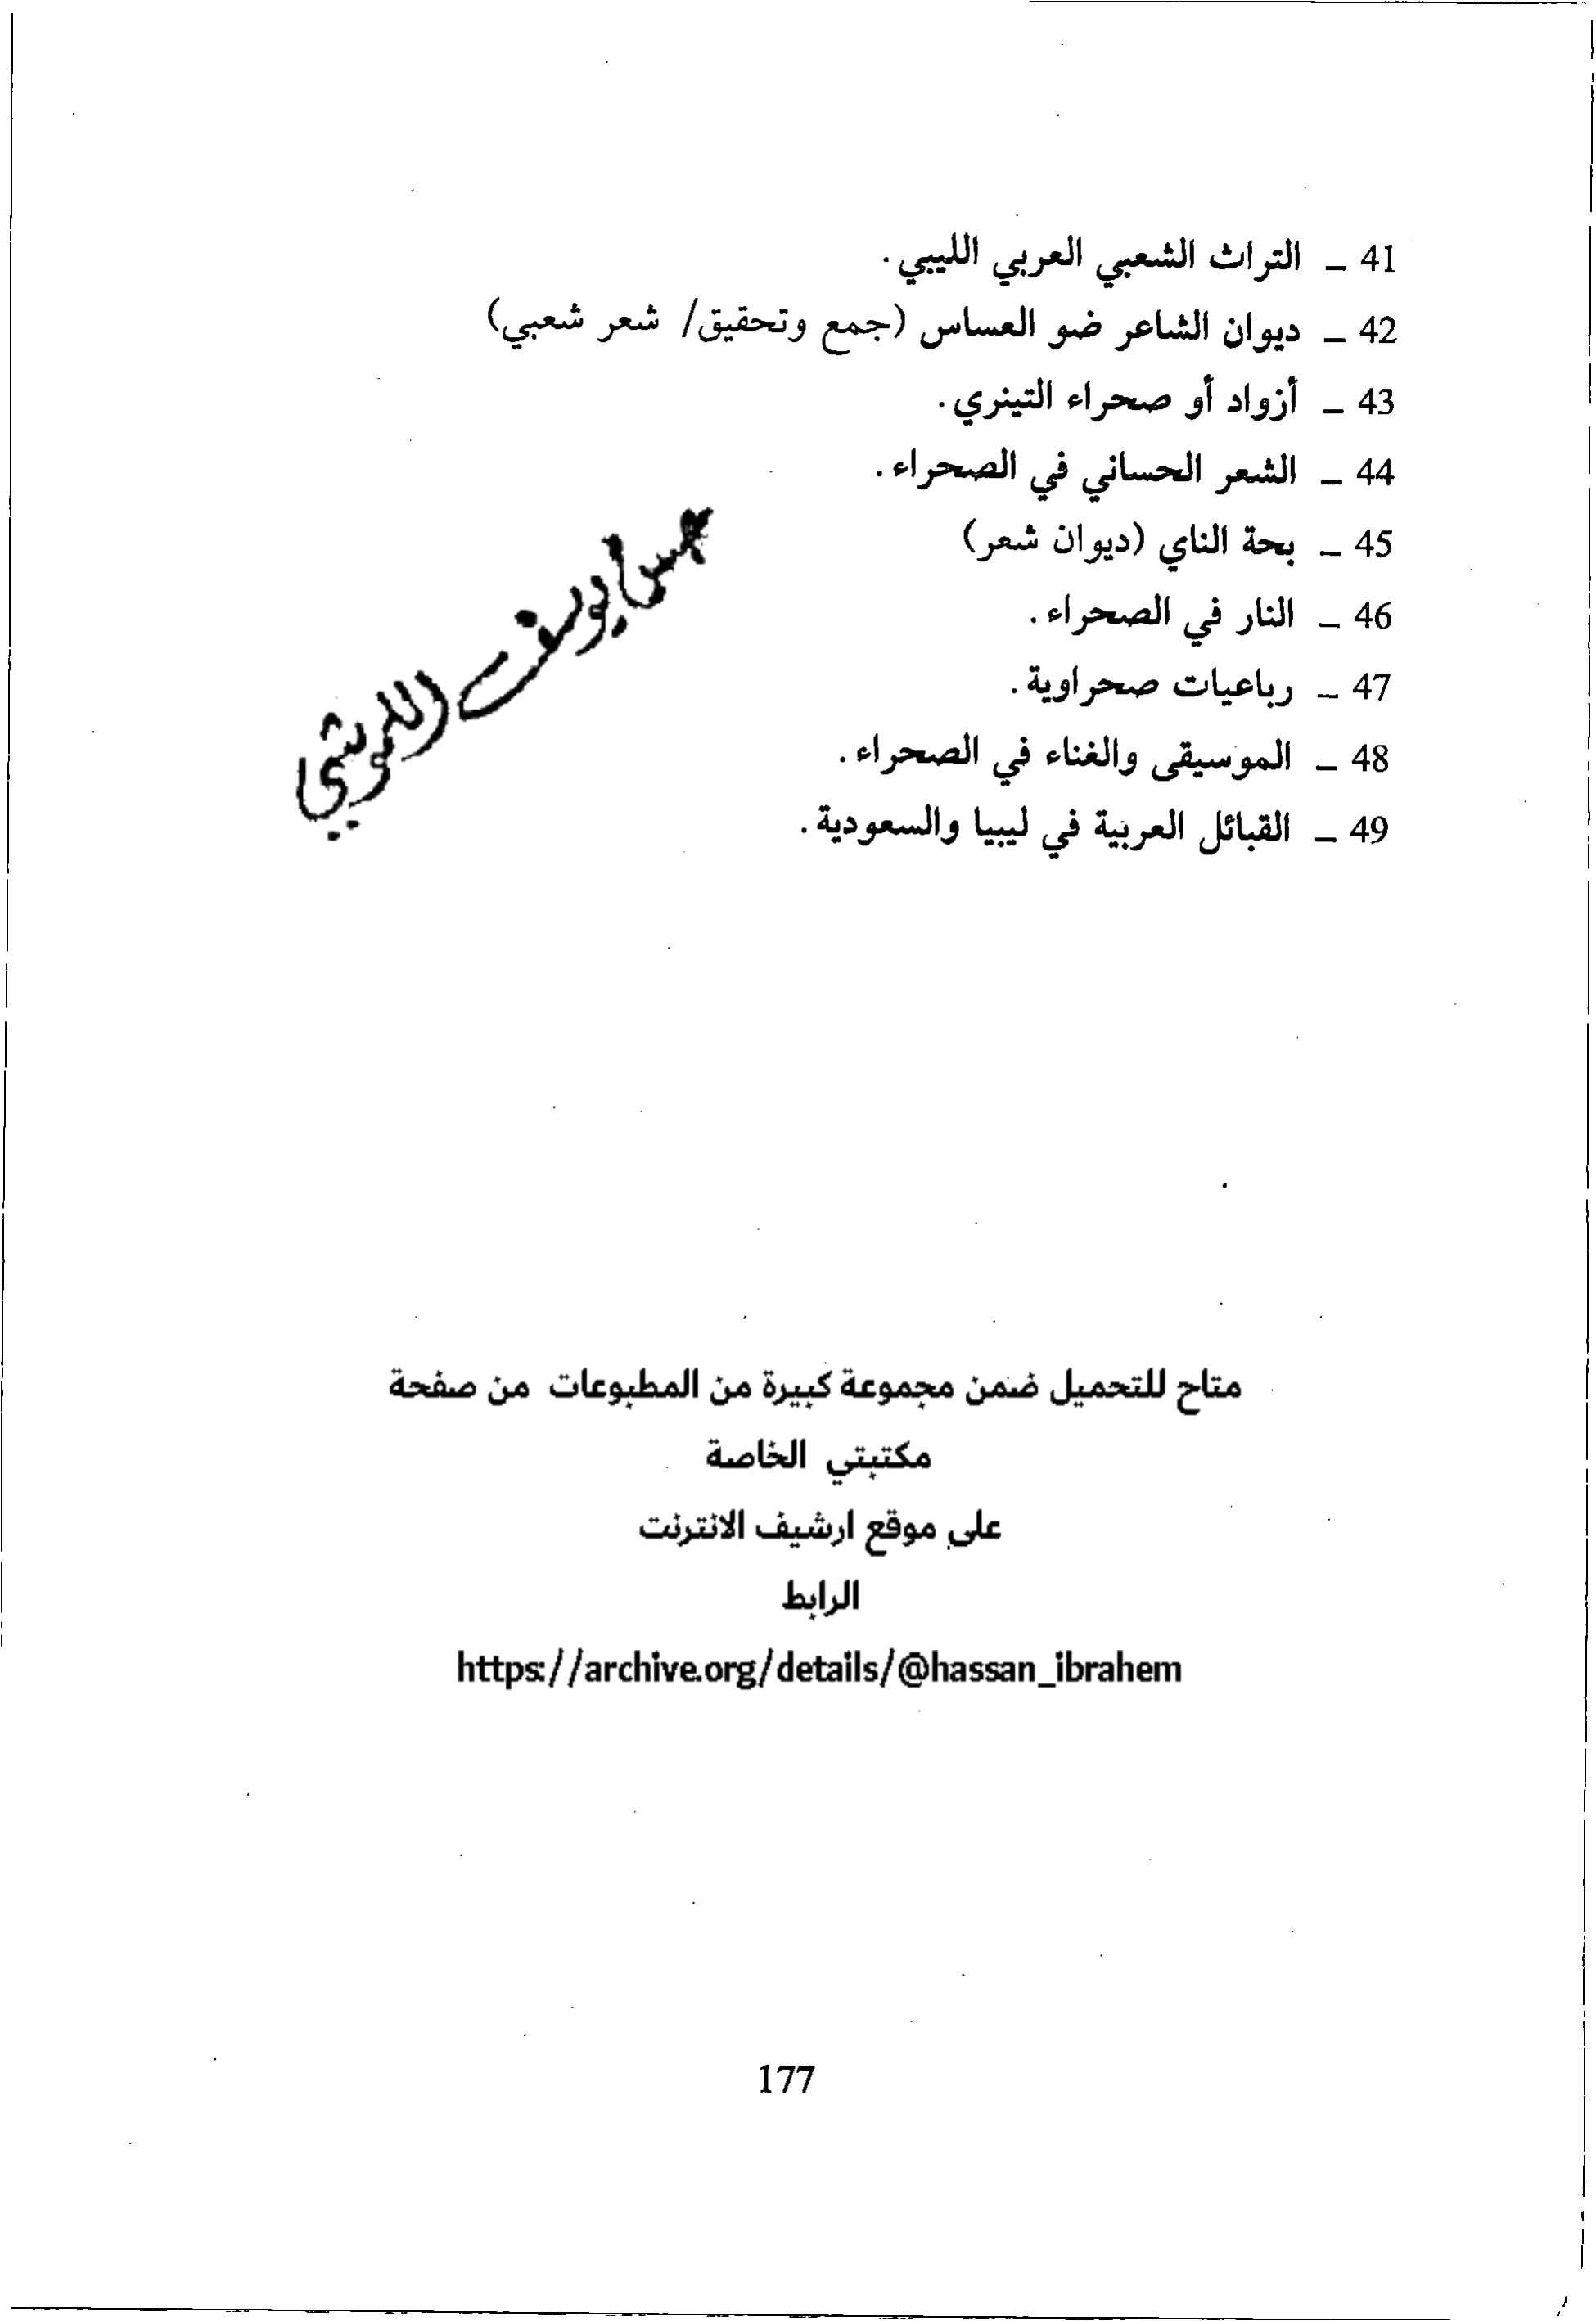 41 – التراث الشعبي العربي الليبي.
42 – ديوان الشاعر ضو العساس (جمع وتحقيق/ شعر شعبي)
43 – أزواد أو صحراء التينري.
44 – الشعر الحساني في الصحراء.
45 – بحة الناي (ديوان شعر)
46 – النار في الصحراء.
47 – رباعيات صحراوية.
48 – الموسيقى والغناء في الصحراء.
49 – القبائل العربية في ليبيا والسعودية.
يوسف
متاح للتحميل ضمن مجموعة كبيرة من المطبوعات من صفحة
مكتبتي الخاصة
على موقع ارشيف الانترنت
الرابط
https://archive.org/details/@hassan_ibrahem
177